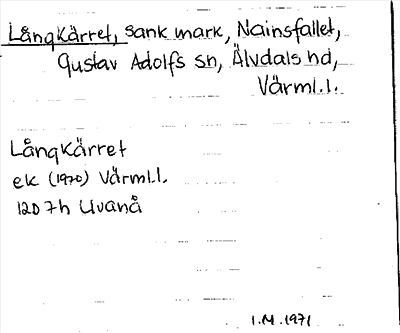 Långkärret, sank mark, Nainsfallet,
Gustav Adolfs sn, Älvdals hd,
Värml.l.
Långkärret
ek (1970) Värml.l.
12D 7h Uvanå
I.M. 1971